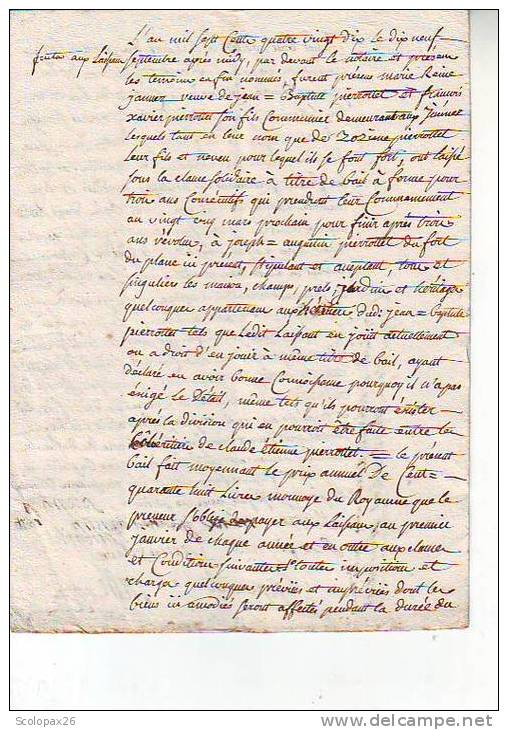 L'an mil sept cents quatre vingt dix le dix neuf
septembre après midy, par devant le notaire et présens
les temoins enfin nommés, furent présens marie Reine
janner veuve de jean = Baptiste pierrottet et françois
xavier pierrottet son fils Communier demeurant aux
lesquels tant en leur nom que de Zozime pierrottet
leur fils et neveu pour lequel ils se font fort, ont laissé
sous la clause solidaire à titre de bail à ferme pour
trois ans Consécutifs qui prendront leur Commencement
au vingt cinq mars prochain pour finir après trois
ans révolus, à joseph = augustin pierrottet du fort
du plane ici présent, stipulant et acceptant, tous et
singuliers les maison, champs, prels, jardin et héritage
quelconques appartenans aux dud: jean = baptiste
pierrottet tels que ledit Laissant en jouit actuellement
ou a droit d'en jouir à même titre de bail, ayant
déclaré en avoir bonne Connoissance pourquoy il n'a pas
éxigé le Détail, même tels qu'ils pourront éxister
après la division qui en pourroit être faite entre les
de claude étienne pierrottet. = le présent
bail fait moyennant le prix annuel De Cent
quarante huit Livres monnoye du Royaume que le
preneur s'oblige payer aux Laissans au premier
janvier de chaque année et en outre aux clauses
et Conditions suivantes 1° toutes impositions et
charges quelconques prévües et imprévües dont les
biens ici amodiés seront affectés pendant la durée du
Scolopax26
DELCAMPE.NET